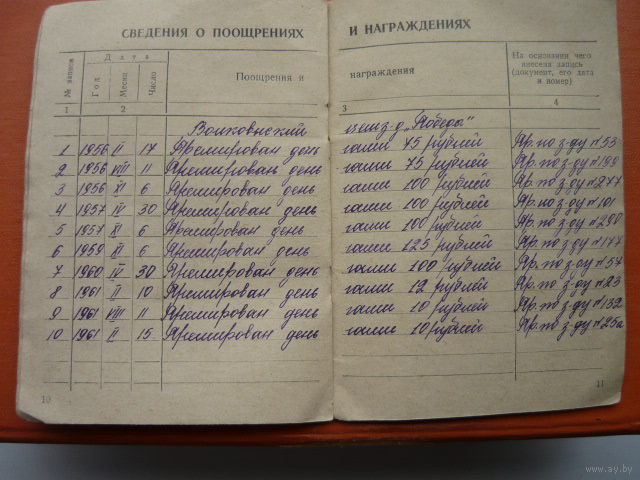 СВЕДЕНИЯ О ПООЩРЕНИЯХ И НАГРАЖДЕНИЯХ
№ записи
Дата
Год
Месяц
Число
Поощрения и награждения
На основании чего внесена запись (документ, его дата и номер)
1 2 3 4
Волковысский з-д „Победа"
1 1956 17 Премирован деньгами 75 рублей Пр. по з-ду № 53
2 1956 VIII 11 Премирован деньгами 75 рублей Пр. по з-ду
3 1956 XI 6 Премирован деньгами 100 рублей Пр. по з-ду № 277
4 1957 IV 30 Премирован деньгами 100 рублей Пр. по з-ду № 101
5 1957 XI 6 Премирован деньгами 100 рублей Пр. по з-ду № 290
6 1959 XI 6 Премирован деньгами 125 рублей Пр. по з-ду № 177
7 1960 IV 30 Премирован деньгами 100 рублей Пр. по з-ду № 57
8 1961 II 10 Премирован деньгами 12 рублей Пр. по з-ду № 23
9 1961 VIII 11 Премирован деньгами 10 рублей Пр. по з-ду № 132
10 1961 II 15 Премирован деньгами 10 рублей Пр. по з-ду № 25а
10
11
www.ay.by